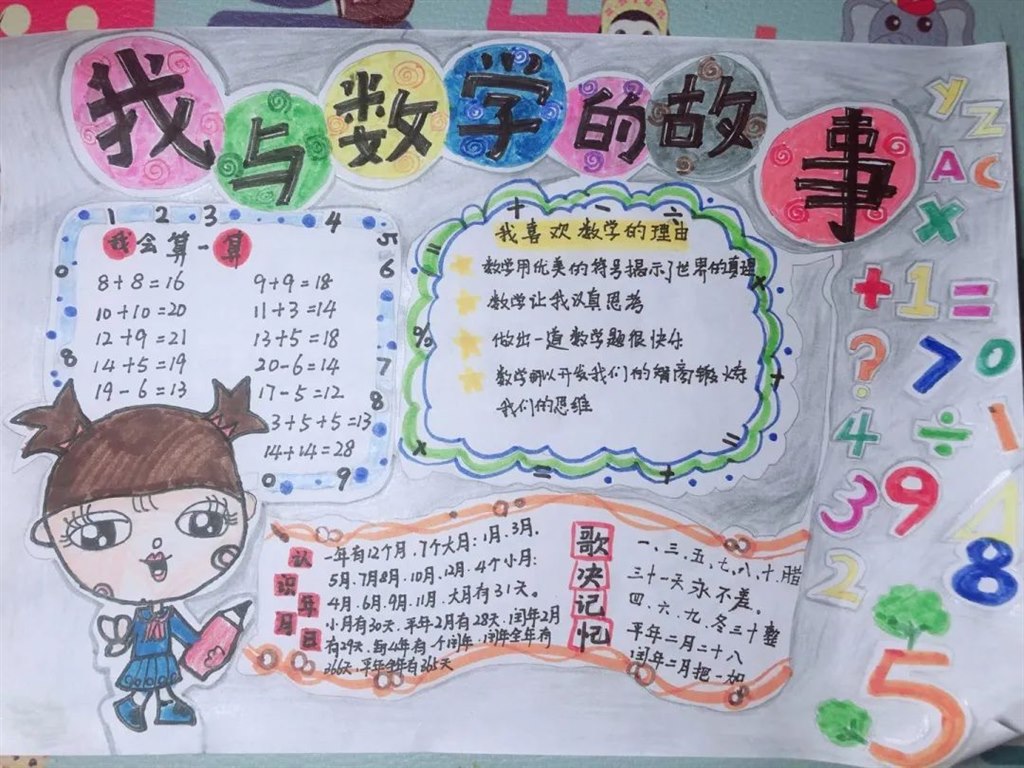 我与数学的故事
Y Z
A C
X
+ 1 =
? 7 0
4 ÷ 1
3 9 4
2 8
5
1 2 3 4 5 6 7 8 9 0
8 0
我会算一算
8+8=16 9+9=18
10+10=20 11+3=14
12+9=21 13+5=18
14+5=19 20-6=14
19-6=13 17-5=12
3+5+5=13
14+14=28
+ - ÷
= %
× × + = = +
我喜欢数学的理由
数学用优美的符号揭示了世界的真理
数学让我认真思考
做出一道数学题很快乐
数学可以开发我们的智商锻炼
我们的思维
认识年月日
一年有12个月.7个大月:1月.3月.
5月.7月8月.10月.12月.4个小月:
4月.6月.9月.11月.大月有31天.
小月有30天.平年2月有28天.闰年2月
有29天.每4年有一个闰年.闰年全年有
366天.平年全年有365天
歌决记忆
一、三、五、七、八、十、腊
三十一天永不差。
四、六、九、冬三十整
平年二月二十八
闰年二月把一加